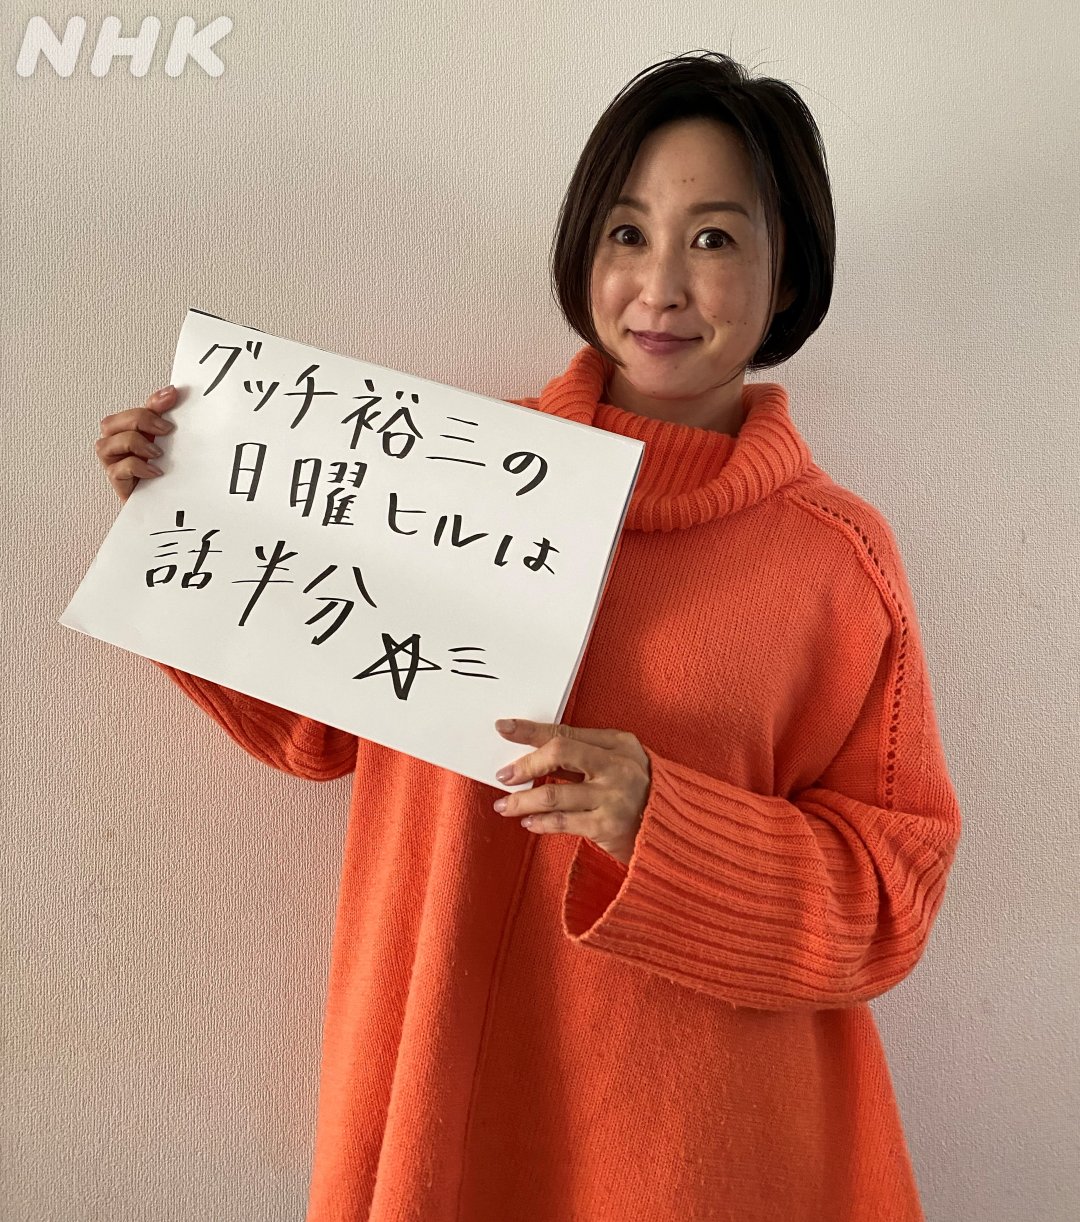 NHK
グッチ裕三の
日曜ヒルは
話半分☆三